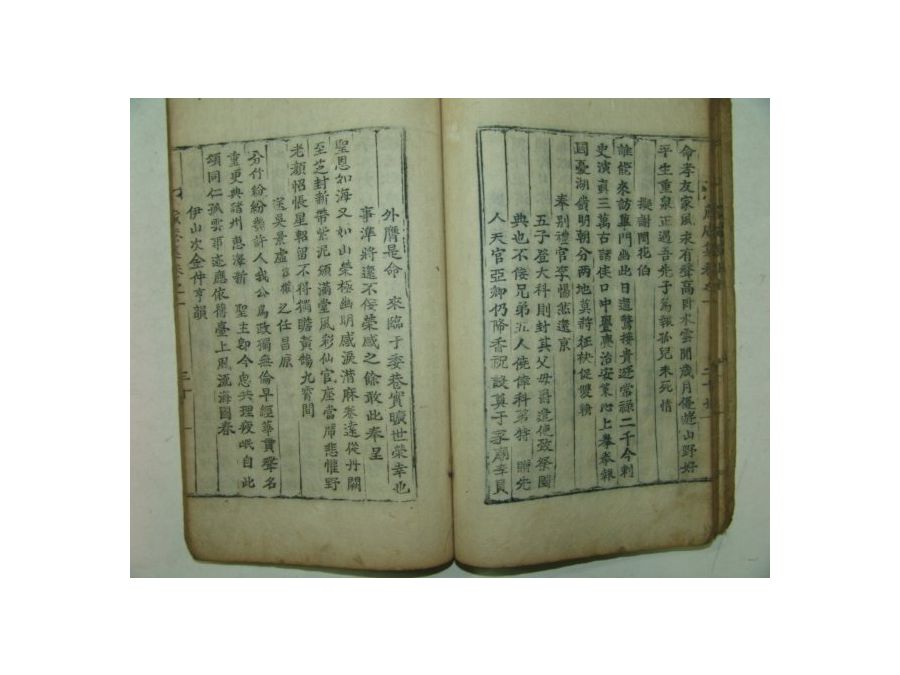 命孝友家風求有聲高臥水雲閒歲月優遊山野好
平生重泉正遇吾先子爲報孤兒未死情
擬謝問花伯
誰能來訪蓽門幽此日還驚摟貴遊常祿二千今刺
史演眞三萬古諸侯口中疊疊治安策心上拳拳報
國憂湖嶺明朝分兩地莫將征袂促雙
奉別禮官李惕然還京
五子登大科則封其父母爵遣使致祭國
典也不佞兄弟五人俱偉科第特贈先
人天官亞卿仍降香祝設奠于家廟李員
外膺是命來臨于委巷實曠世榮幸也
事準將還不佞榮感之餘敢此奉呈
聖恩如海又如山榮極幽明感淚潸麻卷遠從丹闕
至芝封新帶紫泥頒滿堂風彩仙官座當席悲惟野
老顏怊悵星軺留不得獨瞻黃鵠九霄間
送吳景虛之任昌原
分竹紛紛幾許人我公爲政獨無倫早經華貫聲名
重更典諸州惠澤新聖主卽今思共理疲氓自此
頌同仁孤雲遺迹應依舊臺上風流海國春
伊山次金仲亨韻